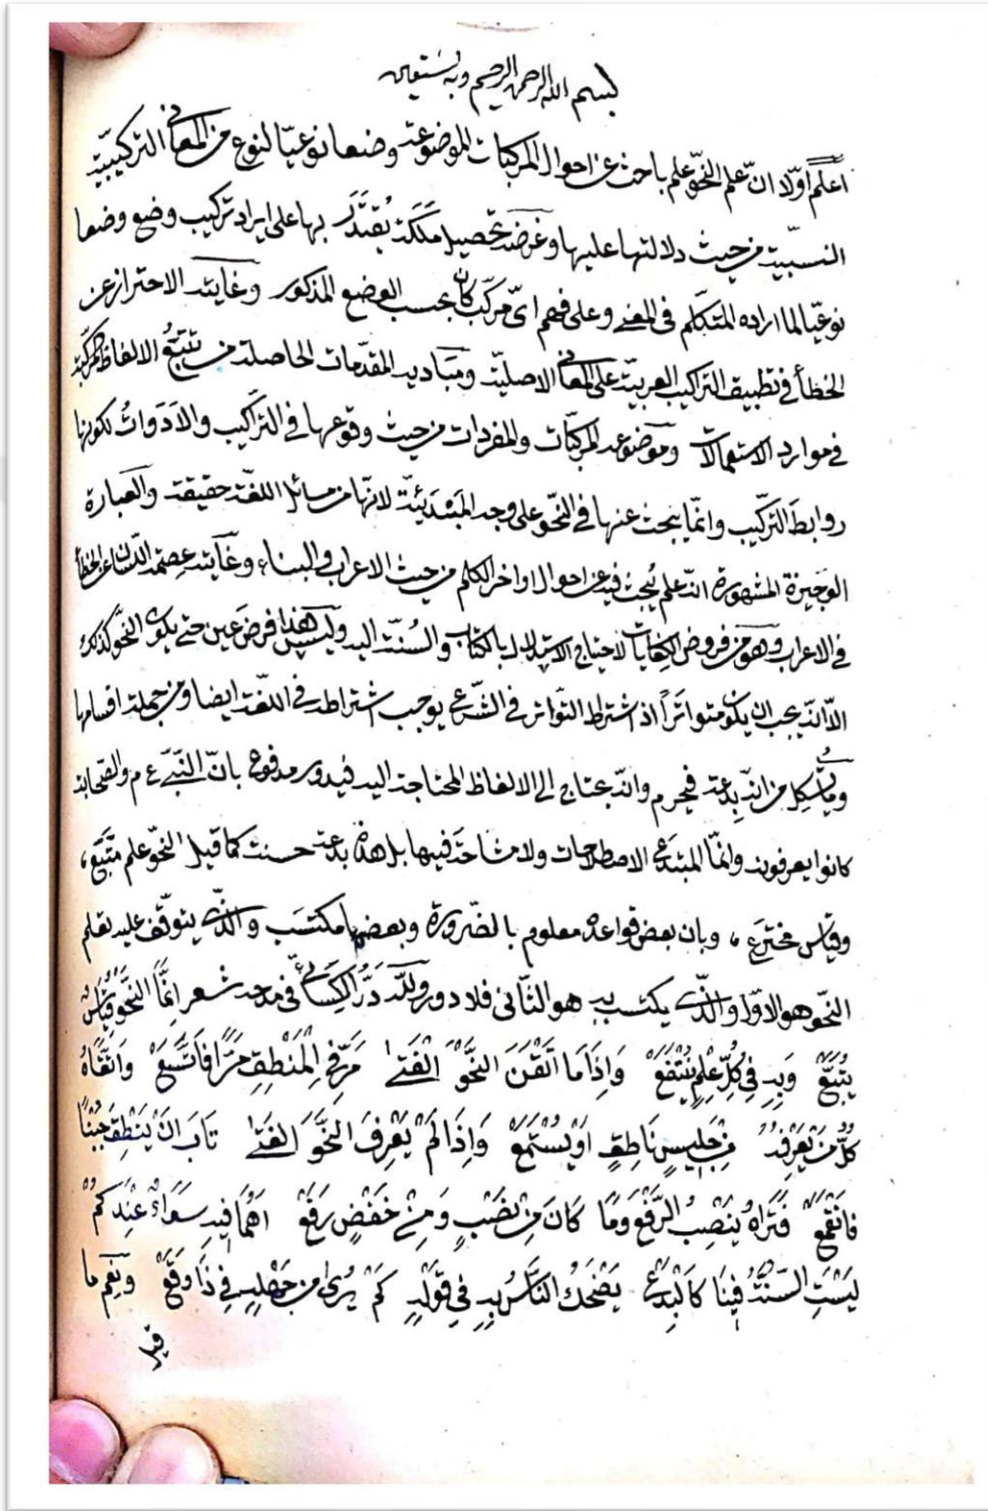 بسم الله الرحمن الرحيم وبه نستعين
اعلم اوّلا انّ علم النحو علم باحث عن احوال المركبات الموضوعة وضعا نوعيّا لنوع من المعانى التركيبيّة
النسبيّة من حيث دلالتها عليها وغرضه تحصيل مَلَكَة يُقتَدَر بها على ايراد تركيب وضع وضعا
نوعيّا لما اراده المتكلّم فى المعنى وعلى فهم اىّ مركّب كان بحسب الوضع المذكور وغايته الاحتراز عن
الخطأ فى تطبيق التراكيب العربيّة على المعانى الاصليّة ومَبَاديه المقدّمات الحاصلة من تتبّع الالفاظ المركّبة
فى موارد الاستعمالات وموضوعه المركّبات والمفردات من حيث وقوعها فى التراكيب والاَدَوات لكونها
روابطَ التركّيب وانّما يبحث عنها فى النحّو على وجه المَبْدئيّة لانّها من مسائل اللغة حقيقة والعبارة
الوَجِيزة المشهورة انّه علم يُبحث فيه عن احوال اواخر الكلم من حيث الاعراب والبناء وغايته عصمة اللّسان عن الخطأ
فى الاعراب وهو من فروض الكفايات لاحتياج الاستدلال بالكتاب والسُنّة اليه وليس هذا فرض عين حتى يكون النحّو كذلك
الّا انّه يجب ان يكون متواتَراً اذ اشتراط التّواتر فى الشّرعى يوجب اشتراطه فى اللغة ايضا ومن جملة اقسامها
وما يُشكل من انّه بِدعة فيحرم وانّه يحتاج الى الالفاظ المحتاجة اليه فيدور مدفوع بانّ النّبىّ ع م والصّحابة
كانوا يعرفونه وانّما المبتدع الاصطلاحات ولا مشاحّة فيها بل هذه بدعة حسنة كما قيل النحّو علم متّبَع،
وقياس مخترع، وبان بعض قواعده معلوم بالضّرورة وبعضها مكتسَب والّذى يتوقّف عليه تعلم
النحّو هو الاوّل والّذى يكتسب به هو الثّانى فلا دور ولله دَرّ الكِسَائىّ فى مدحه شعر اِنَّمَا النَّحْوُ قِيَاسٌ
يُتَّبَعْ وَبِهِ فِى كُلِّ عِلْمٍ يُنْتَفَعْ وَاِذَا مَا اَتْقَنَ النَّحْوَ الْفَتىٰ مَرَّ فِى الْمَنْطِقِ مَرًّا فَاتَّسَعْ وَاتَّقَاهُ
كُلُّ مَنْ يَعْرِفُهُ مِنْ جَلِيسٍ نَاطِقٍ اَوْ يَسْتَمِعْ وَاِذَا لَمْ يَعْرِفِ النَّحْوَ الفَتىٰ تَابَ اَنْ يَنْطِقَ جُبْنًا
فانْقَمَعْ فَتَراهُ يَنْصِبُ الرَّفْعَ وَمَا كَانَ مِنْ نَصْبٍ وَمِنْ خَفْضٍ رَفَعْ اَهُمَا فيهِ سَوَاءٌ عِنْدَكُمْ
لَيْسَتِ السُّنَّةُ فِينَا كَالْبِدَعْ يَضْحَكُ النَّاسُ بِهِ فِى قَوْلِهِ كَمْ يُرىٰ مِن جَهْلِهِ فِى ذَا وَقَعْ ونِعْمَ ما
قيل